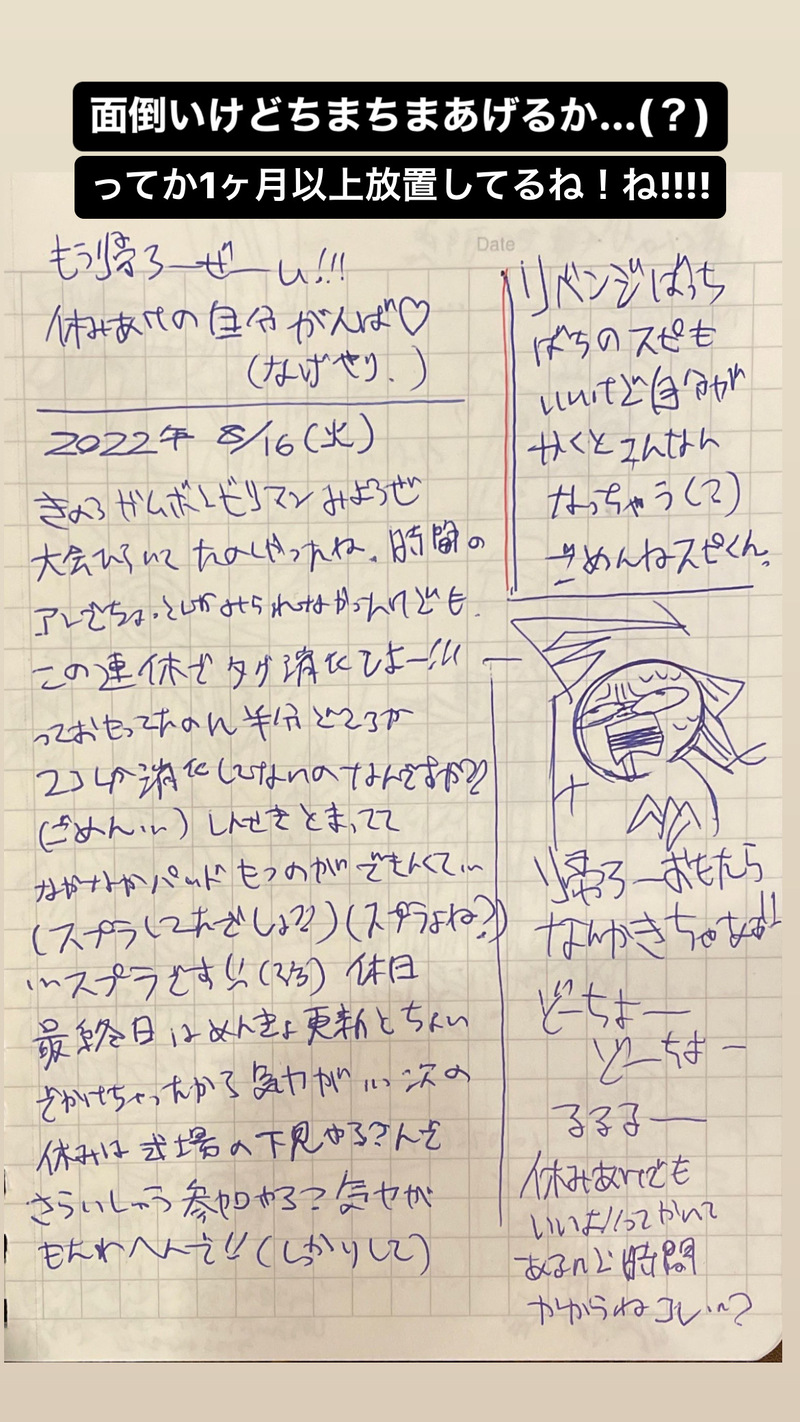 面倒いけどちまちまあげるか…(？)
ってか1ヶ月以上放置してるね！ね!!!!
Date
もう帰ろーぜーい!!!
休みあけの自分がんば♡
(なげやり.)
2022年 8/16(火)
きのうガムボとビリマンみようぜ
大会ひらいてたのしかったね。時間の
アレでちょっとしかみられなかったけども.
この連休でタグ消化するよー!!!
っておもってたのに半分どころか
2コしか消化してないのなんですか??
(ごめんい) しんせきとまってて
なかなかパッドもつのができんくてい
(スプラしてたでしょ??)(スプラよね?)
いスプラです!! 休日
最終日はめんきょ更新とちょい
でかけちゃったから気力がい次の
休みは式場の下見やる?んで
さらいしゅう参加やる?気力が
もたねへんで!!(しっかりして)
リベンジばっち
ばちのスピも
いいけど自分が
かくとこんなん
なっちゃう(?)
ごめんねスピくん。
帰ろーおもたら
なんかきちゃなぁ!!
どーちよー
どーちよー
るるるー
休みあけでも
いいよ!ってかいて
あるけど時間
かからねコレい?